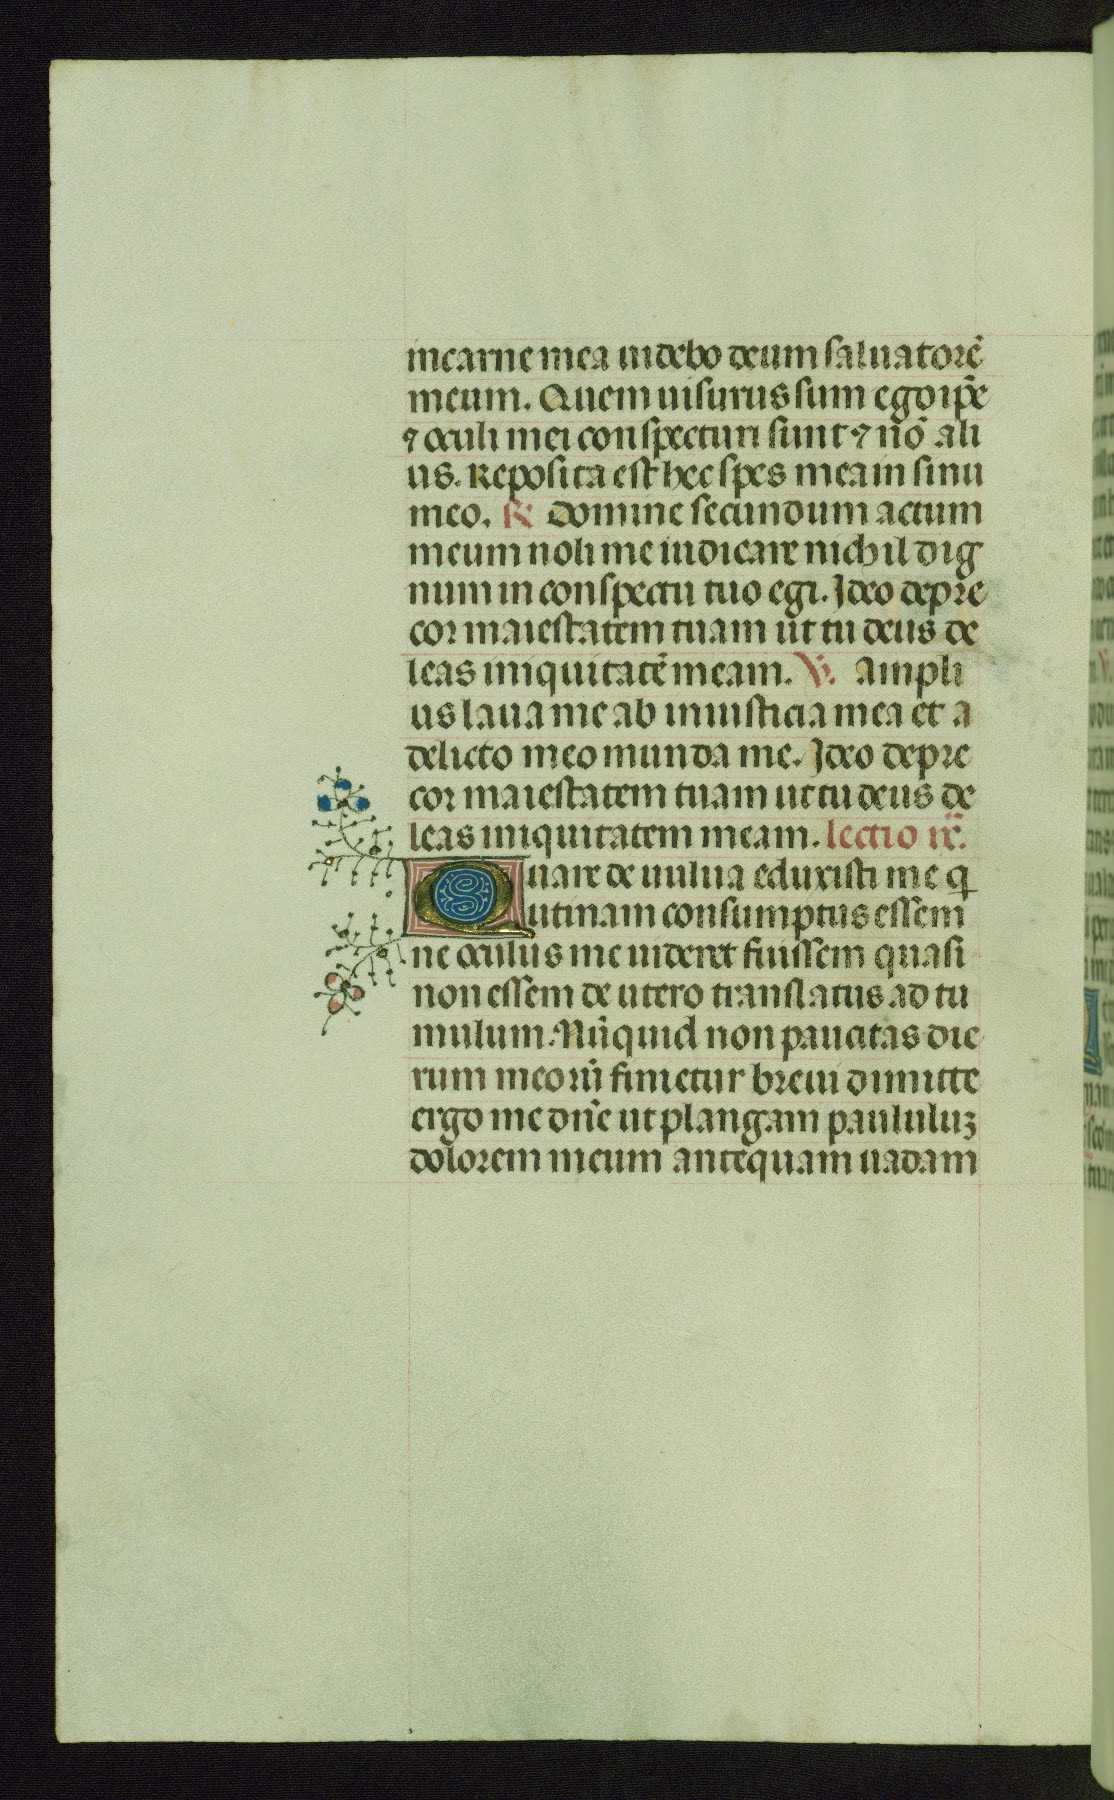 in carne mea uidebo deum saluatorē
meum. Quem uisurus sum ego ip̄e
⁊ oculi mei conspecturi sunt ⁊ nō ali
us. Reposita est hec spes mea in sinu
meo. ℟ Domine secundum actum
meum noli me iudicare nichil dig
num in conspectu tuo egi. Ideo depre
cor maiestatem tuam ut tu deus de
leas iniquitatē meam. ℣. Ampli
us laua me ab iniusticia mea et a
delicto meo munda me. Ideo depre
cor maiestatem tuam ut tu deus de
leas iniquitatem meam. lectio ix.
Quare de uulua eduxisti me q̄
utinam consumptus essem
ne oculus me uideret fuissem quasi
non essem de utero translatus ad tu
mulum. Nūquid non paucitas die
rum meorū finietur breui dimitte
ergo me dn̄e ut plangam paululuꝫ
dolorem meum antequam uadam